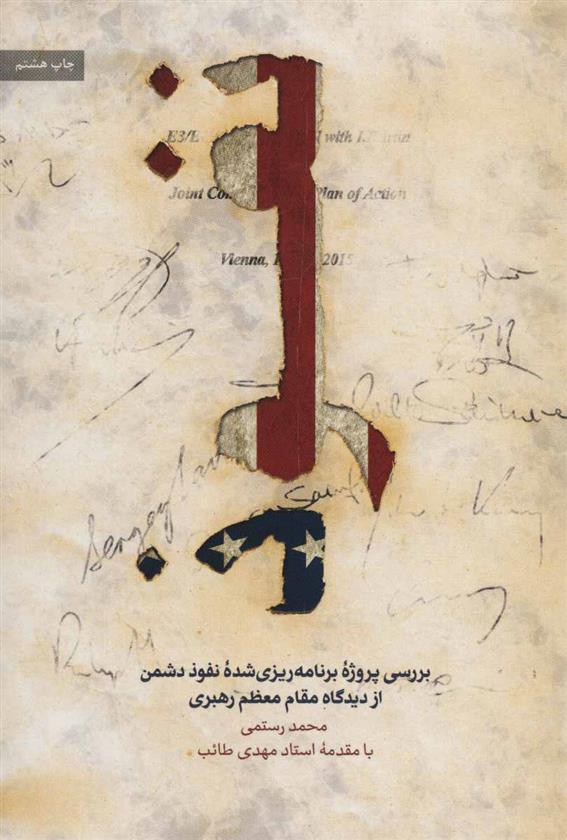 چاپ هشتم
نفوذ
with I.R Iran
Joint Plan of Action
Vienna, 2015
Sergey
بررسی پروژهٔ برنامه‌ریزی‌شدهٔ نفوذ دشمن
از دیدگاه مقام معظم رهبری
محمد رستمی
با مقدمهٔ استاد مهدی طائب